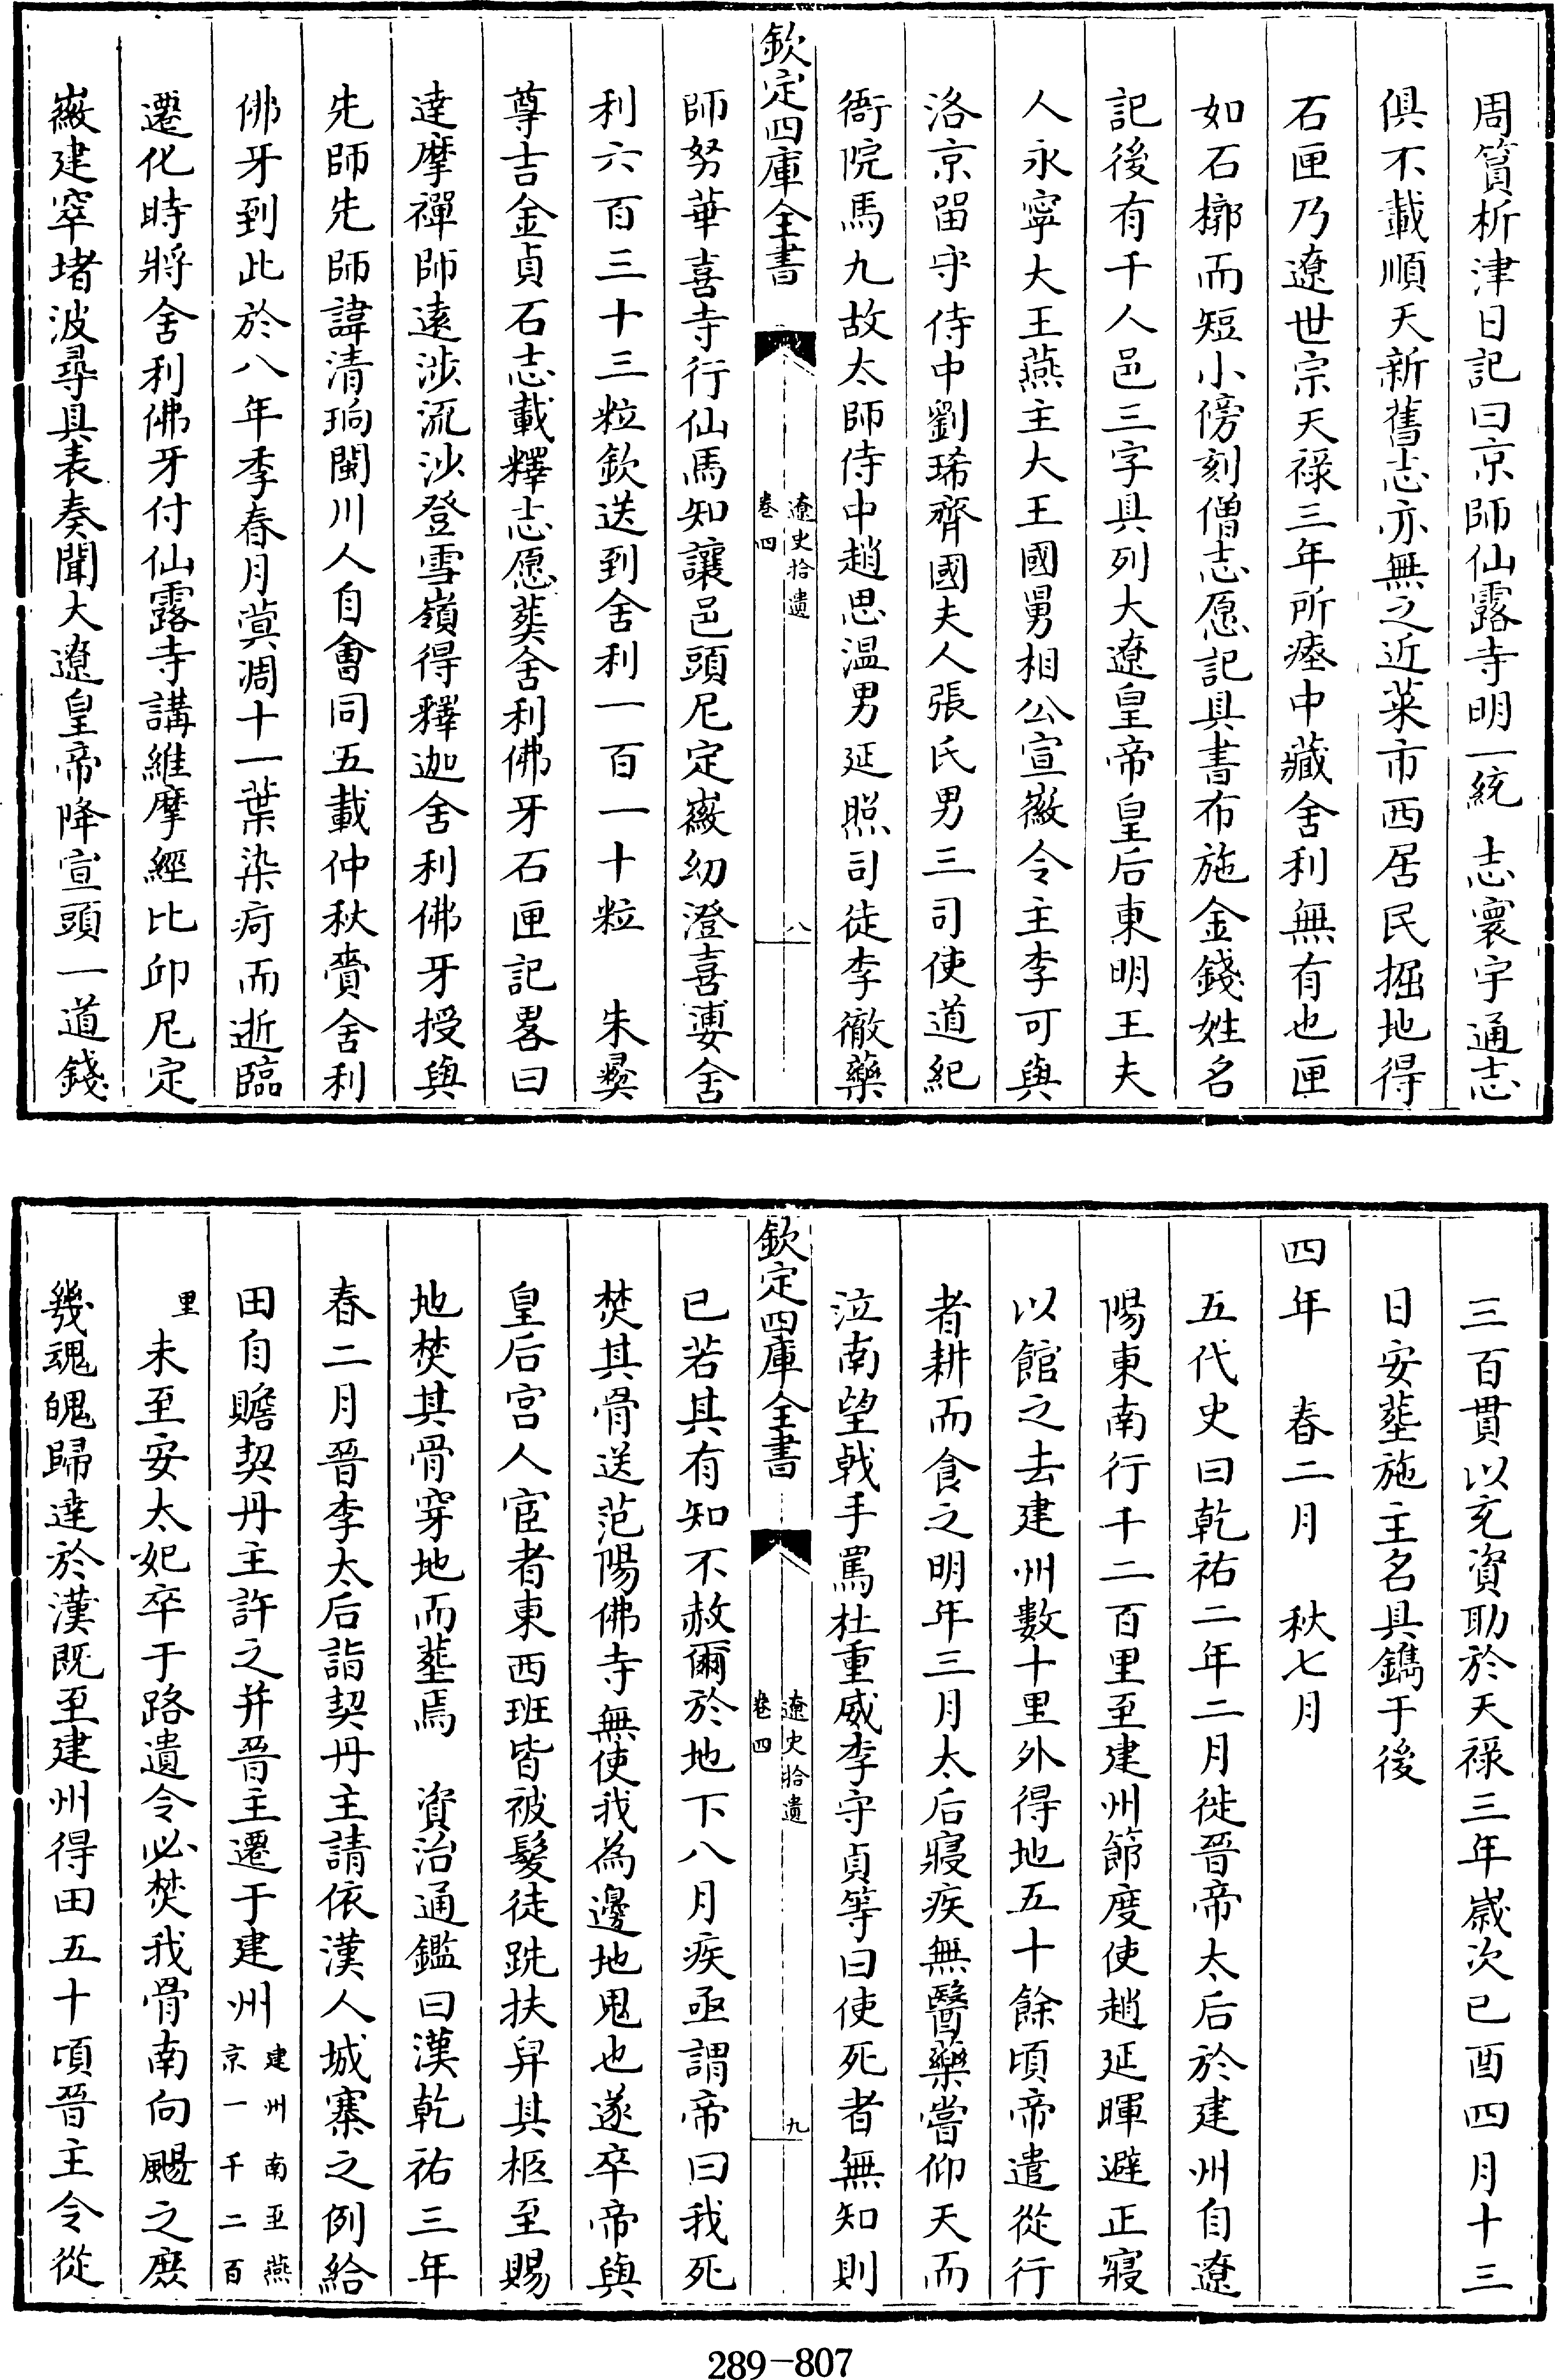 周篔析津日記曰京師仙露寺明一統志寰宇通志
俱不載順天新舊志亦無之近菜市西居民掘地得
石匣乃遼世宗天祿三年所瘞中藏舍利無有也匣
如石槨而短小傍刻僧志愿記具書布施金錢姓名
記後有千人邑三字具列大遼皇帝皇后東明王夫
人永寧大王燕主大王國舅相公宣徽令主李可與
洛京留守侍中劉琋齊國夫人張氏男三司使道紀
衙院馬九故太師侍中趙思溫男延照司徒李徹藥
欽定四庫全書
遼史拾遺
卷四
八
師努華喜寺行仙馬知讓邑頭尼定薇幼澄喜婁舍
利六百三十三粒欽送到舍利一百一十粒 朱彝
尊吉金貞石志載釋志愿葬舍利佛牙石匣記畧曰
達摩禪師遠涉流沙登雪嶺得釋迦舍利佛牙授與
先師先師諱清珦閩川人自會同五載仲秋賫舍利
佛牙到此於八年季春月蓂凋十一葉染疴而逝臨
遷化時將舍利佛牙付仙露寺講維摩經比邱尼定
薇建窣堵波尋具表奏聞大遼皇帝降宣頭一道錢
三百貫以充資助於天祿三年歲次己酉四月十三
日安塟施主名具鐫于後
四年 春二月 秋七月
五代史曰乾祐二年二月徙晉帝太后於建州自遼
陽東南行千二百里至建州節度使趙延暉避正寢
以館之去建州數十里外得地五十餘頃帝遣從行
者耕而食之明年三月太后寢疾無醫藥嘗仰天而
泣南望戟手罵杜重威李守貞等曰使死者無知則
欽定四庫全書
遼史拾遺
卷四
九
已若其有知不赦爾於地下八月疾亟謂帝曰我死
焚其骨送范陽佛寺無使我為邊地鬼也遂卒帝與
皇后宮人宦者東西班皆被髮徒跣扶舁其柩至賜
地焚其骨穿地而塟焉 資治通鑑曰漢乾祐三年
春二月晉李太后詣契丹主請依漢人城寨之例給
田自贍契丹主許之并晉主遷于建州建州南至燕京一千二百
里未至安太妃卒于路遺令必焚我骨南向颺之庶
幾魂魄歸達於漢既至建州得田五十頃晉主令從
289-807